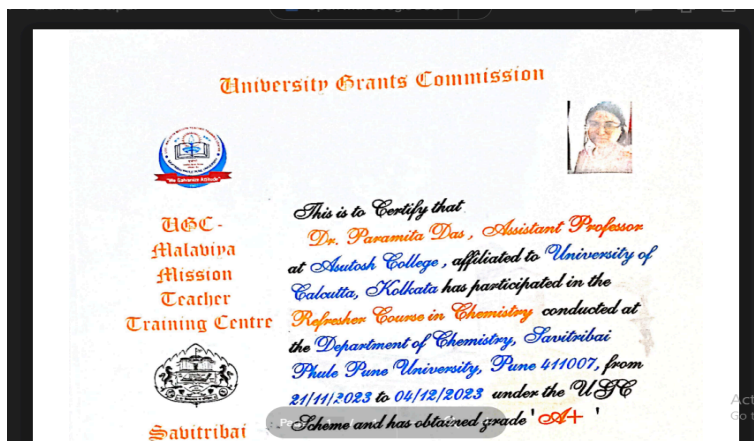 University Grants Commission
"We Galvanize Attitude"
UGC -
Malaviya
Mission
Teacher
Training Centre
Savitribai
This is to Certify that
Dr. Paramita Das , Assistant Professor
at Asutosh College , affiliated to University of
Calcutta, Kolkata has participated in the
Refresher Course in Chemistry conducted at
the Department of Chemistry, Savitribai
Phule Pune University, Pune 411007, from
21/11/2023 to 04/12/2023 under the UGC
Scheme and has obtained grade ' A+ '